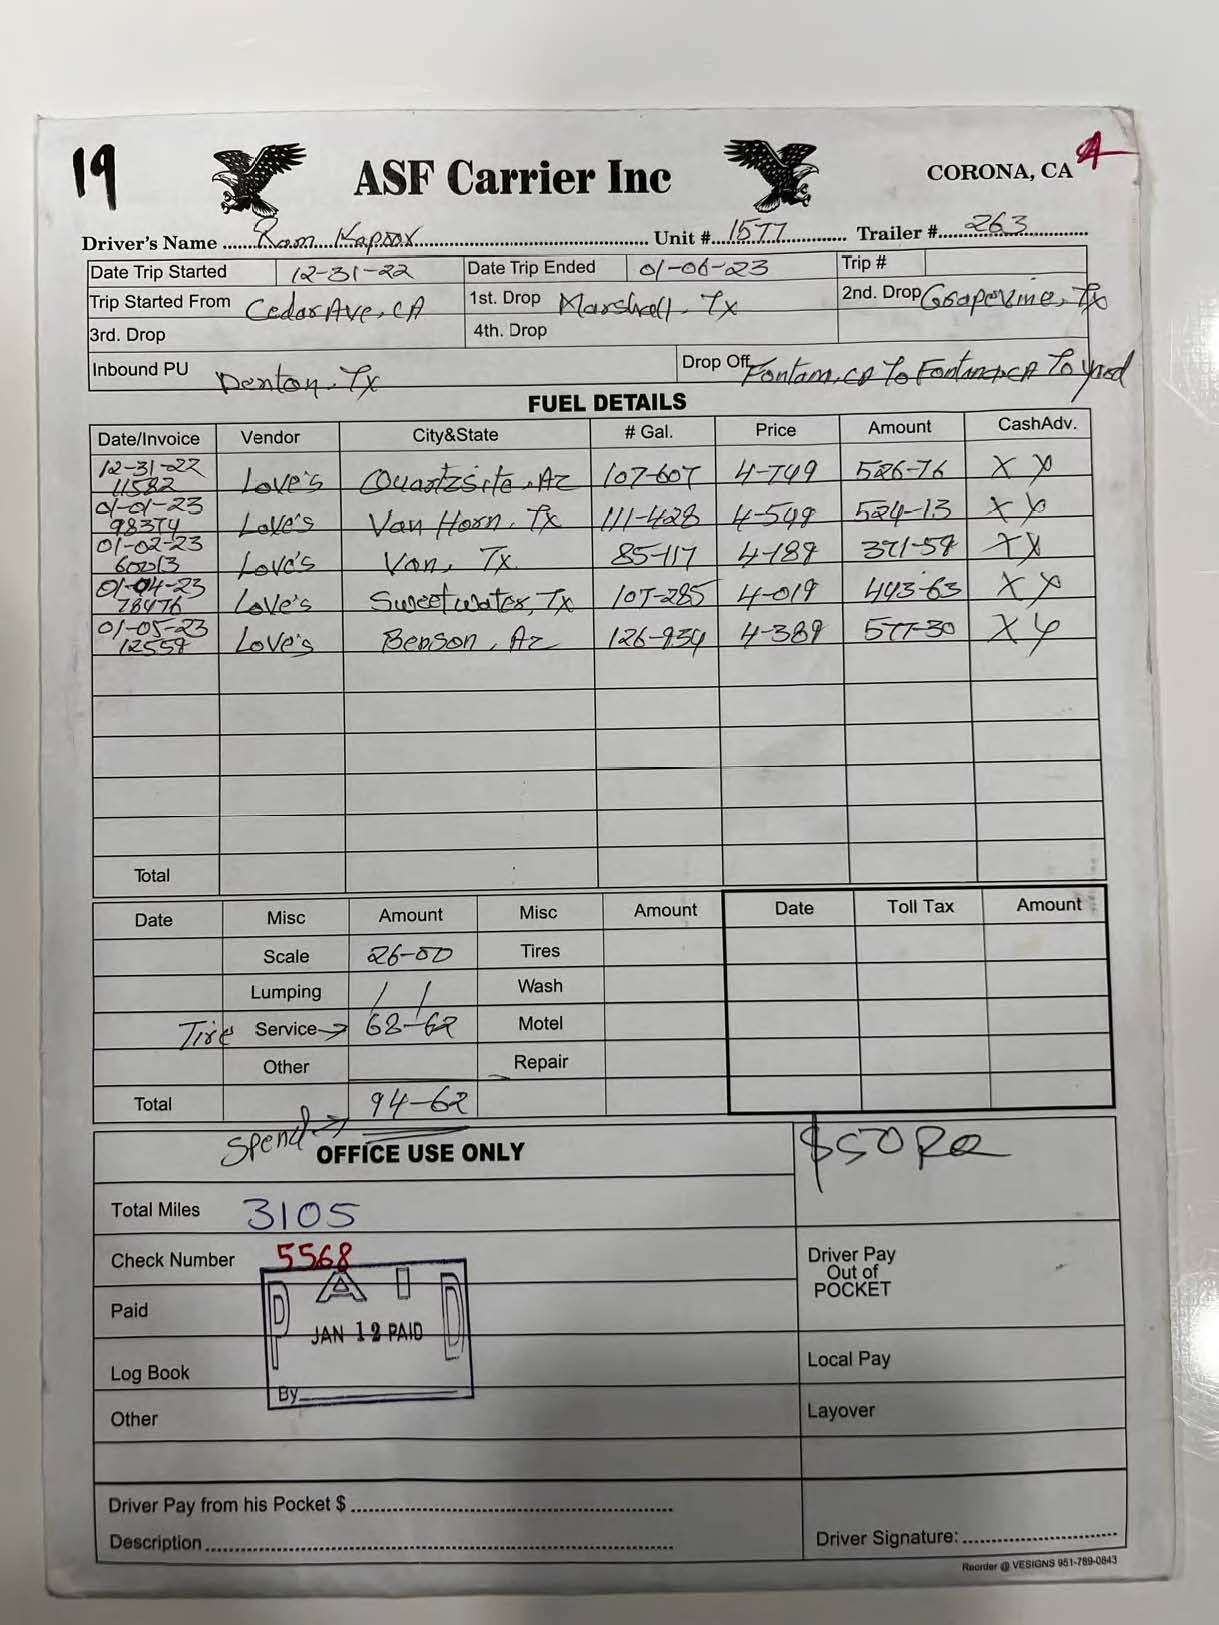 19
ASF Carrier Inc
CORONA, CA
Driver's Name Ram Kapoor Unit # 1577 Trailer # 263
Date Trip Started 12-31-22 Date Trip Ended 01-06-23 Trip #
Trip Started From Cedar Ave, CA 1st. Drop Marshall, Tx 2nd. Drop Grapevine, Tx
3rd. Drop 4th. Drop
Inbound PU Denton, Tx Drop Off Fontana, CA To Fontana, CA To yard
FUEL DETAILS
Date/Invoice Vendor City&State # Gal. Price Amount CashAdv.
12-31-22 11582 Love's Quartzsite, Az 107-607 4-749 526-76 X X
01-01-23 98374 Love's Van Horn, Tx 111-428 4-549 524-13 X X
01-02-23 60013 Love's Van, Tx. 85-117 4-189 371-59 X X
01-04-23 78476 Love's Sweetwater, Tx 107-285 4-019 443-63 X X
01-05-23 12559 Love's Benson, Az 126-934 4-389 577-30 X X
Total
Date Misc Amount Misc Amount Date Toll Tax Amount
Scale 26-00 Tires
Lumping / / Wash
Tire Service → 68-62 Motel
Other Repair
Total 94-62
Spend →
OFFICE USE ONLY
Total Miles 3105
Check Number 5568
PAID
Paid JAN 12 PAID
Driver Pay
Out of
POCKET
Log Book Local Pay
By
Other Layover
Driver Pay from his Pocket $
Description Driver Signature:
Reorder @ VESIGNS 951-789-0843